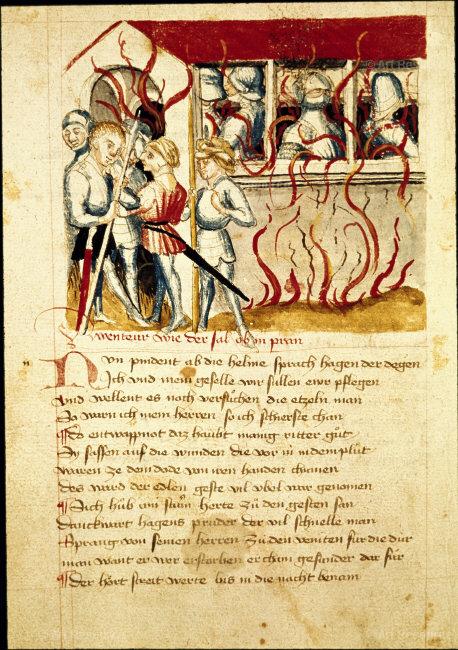 Awenteur wie der sal ob in pran
Nvn pindent ab die helme sprach hagen der degen
Ich vnd mein geselle wir sullen ewr pflegen
Vnd wellent es noch versuchen die etzeln man
So warn ich mein herren so ich schierste chan
Do entwappnot daz haubt manig ritter gut
Sy sassen auf die wunden die vor in in dem plut
waren ze dem dode von iren handen chomen
des ward der edlen geste vil vbel war genomen
Sich hub ain sturm herte zu den gesten san
danckwart hagens pruder der vil schnelle man
Sprang von seinen herren zu den veinten für die dür
man want er wer erstorben er chom gesunder dar für
Der hört streit werte bis in die nacht benam